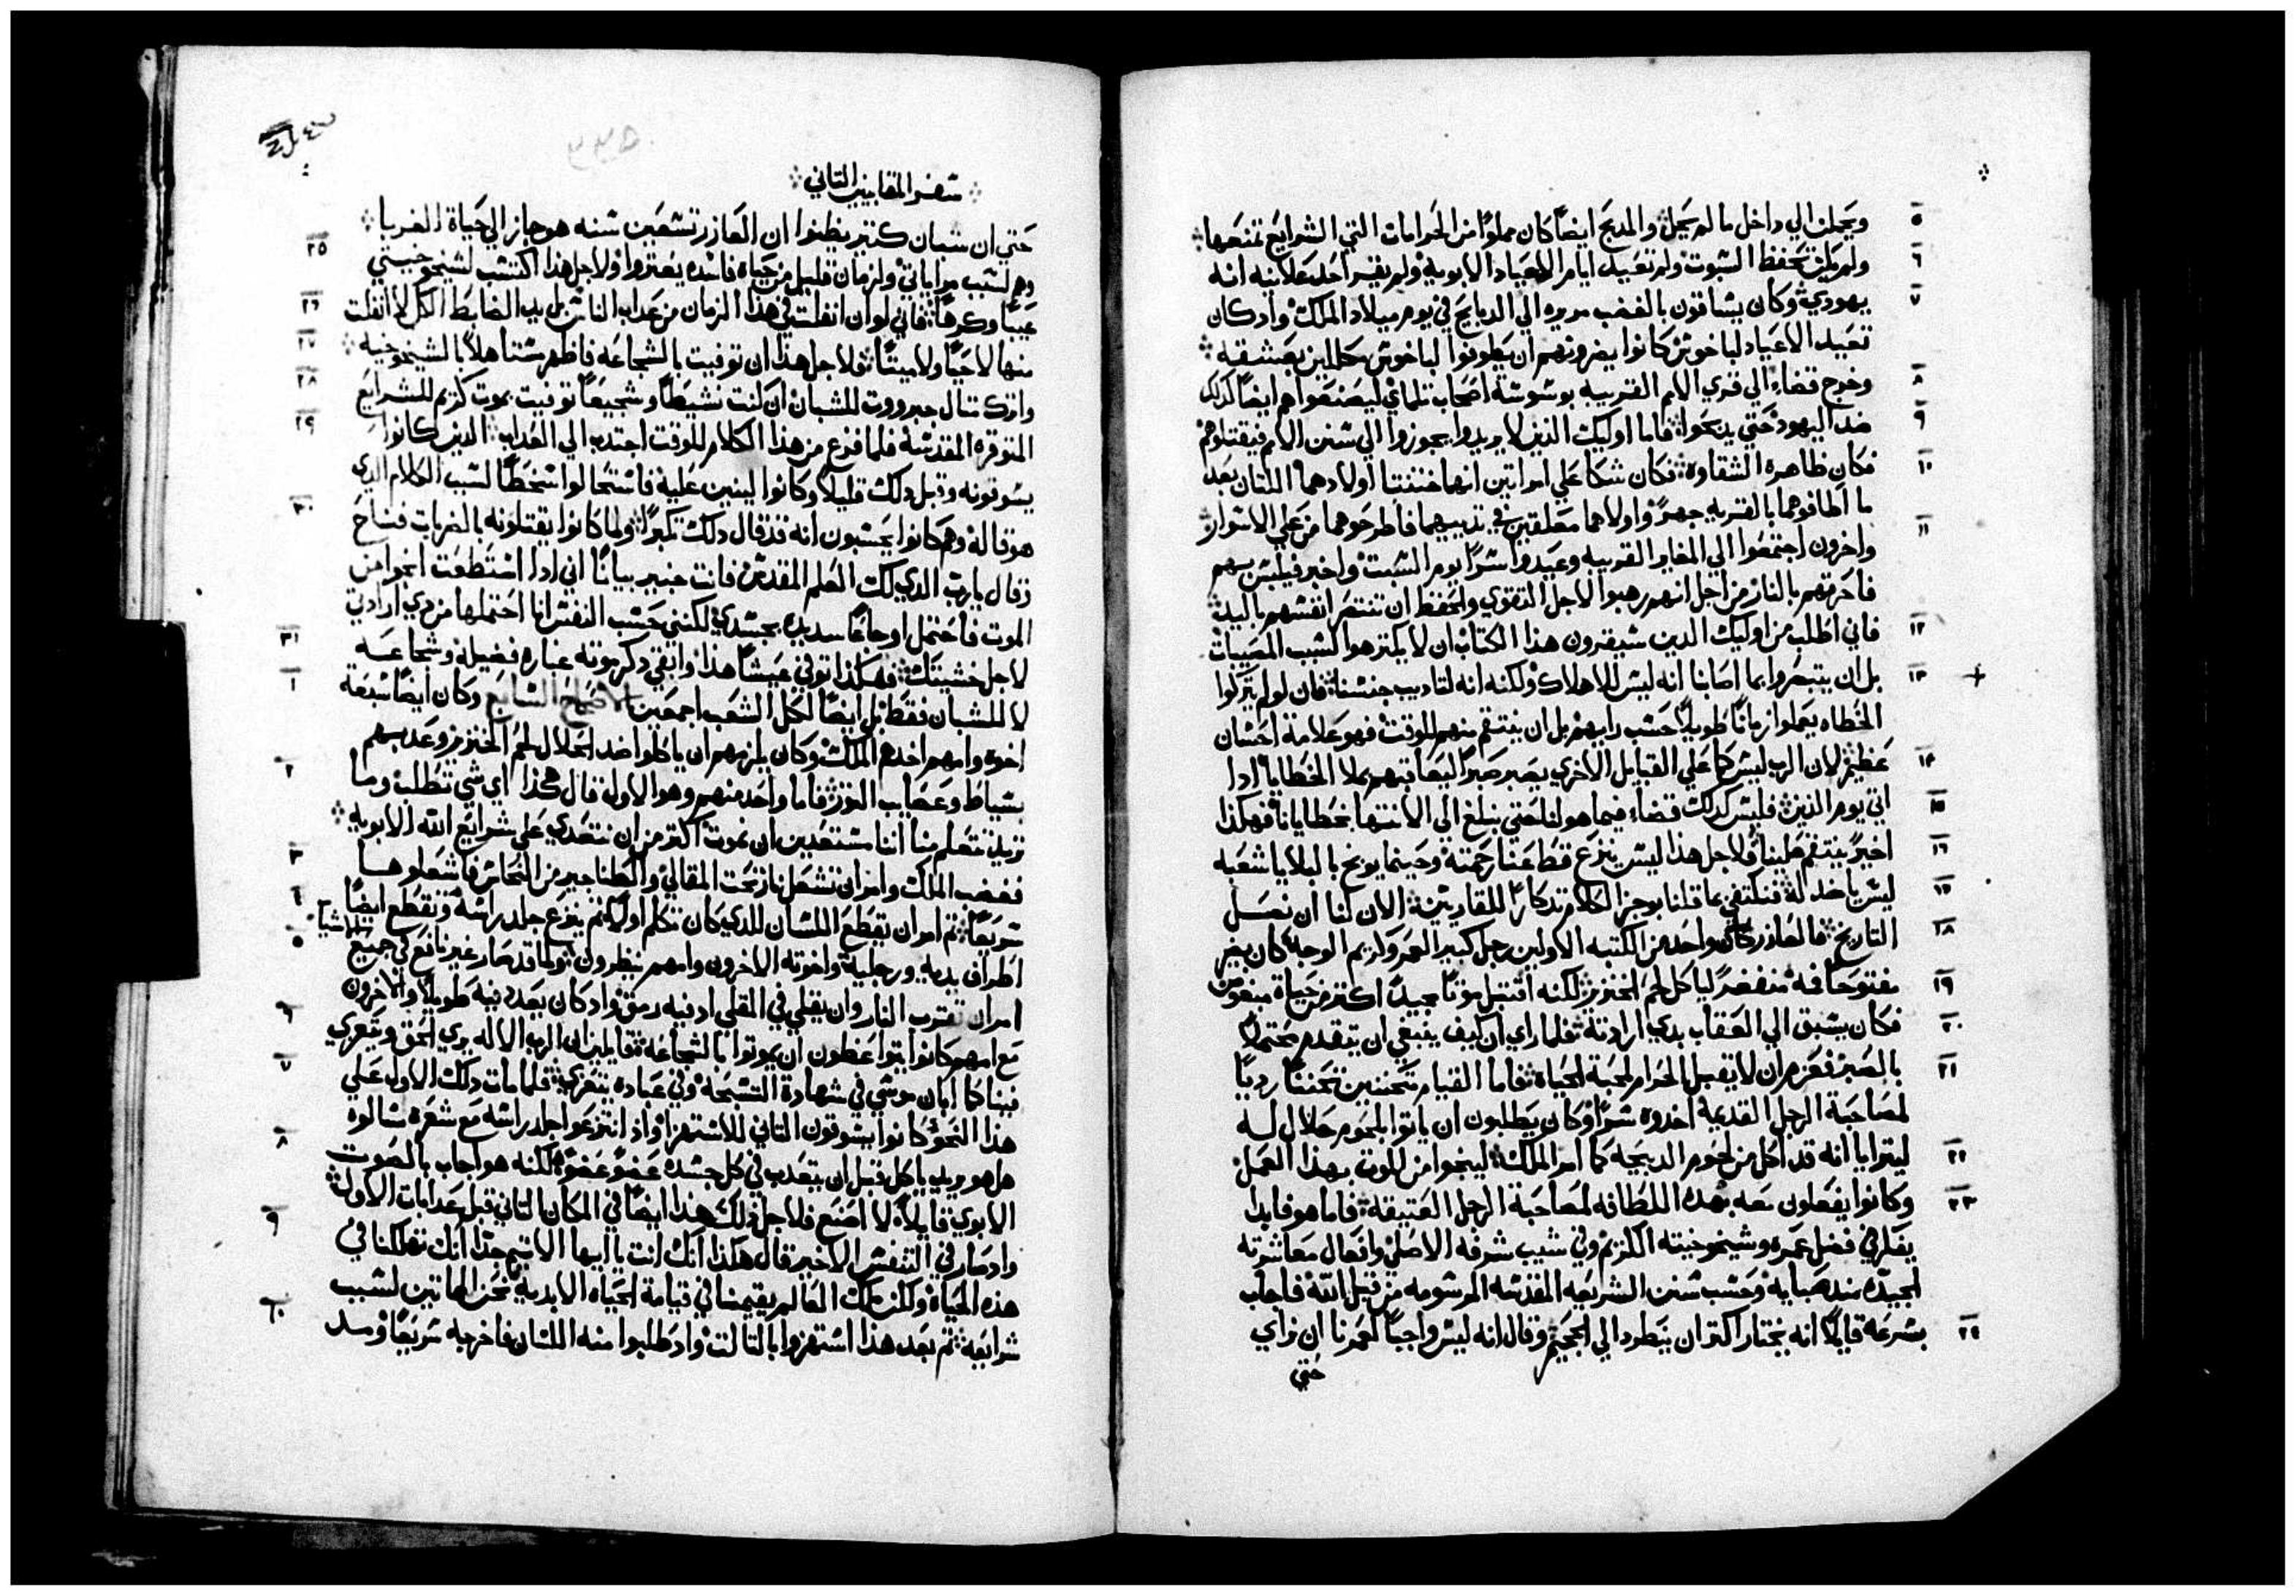 ٥ ويجعلن الي داخل ما لم يحل والمدبح ايضًا كان مملوًا من الحرامات التي الشرايع تمنعها
٦ ولم يكن تحفظ السبوت ولم تعيد ايام الاعياد الابوية ولم يقر احد علانيه انه
٧ يهودي وكان يساقون بالغصب مريره الي الدبايح في يوم ميلاد الملك واد كان
تعيد الاعياد لباخوش كانوا يضرونهم ان يطوفوا لباخوش مكللين بعشقه
٨ وخرج قضاء الي قري الامم القريبه بوسوسة اصحاب تلماي ليصنعوا هم ايضًا كدلك
٩ ضد اليهود حتي يدبحوا فاما اوليك الذين لا يريدوا يجوزوا الي سنن الامم فيقتلوهم
١٠ فكان ظاهره الشقاوة فكان شكا علي امراتين انهما ختنتا اولادهما اللتان بعد
ما اطافوهما بالقريه جهرً واولادهما معلقين في تدييهما فاطرحوهما من علي الاسوار
١١ واخرون اجتمعوا الي المغاير القريبه وعيدوا سرًا يوم السبت واخبر فيلبس بهم
فاحرقهم بالنار من اجل انهم رهبوا لاجل التقوي والحفظ ان تنتصر انفسهم باليد
١٢ فاني اطلب من اوليك الدين سيقرون هذا الكتاب ان لا يكترهوا لسبب المصيبات
١٣ بل ان يتبصروا بما اصابنا انه ليس للاهلاك ولكنه انه لتاديب جنسنا فان لو لم يتركوا
الخطاه يعملوا زمانًا طويلاً حسب رايهم بل ان ينتقم منهم للوقت فهو علامة احسان
١٤ عظيم لان الرب ليس كما علي القبايل الاخري يصبر صبرًا ليعاقبهم بملا الخطايا ادا
١٥ اتي يوم الدين فليس كدلك قضاء فيما هو لنا حتي يبلغ الي الانتها بخطايانا فهكذا
١٦ اخيرً ينتقم علينا فلاجل هذا ليس ينزع قط عنا رحمته وحينما يوبخ بالبلايا شعبه
١٧ ليس ياخد له فنكتفي بما قلنا بوجز الكلام تدكارًا للقاريين الان لنا ان نصل
١٨ التاريخ فالعازر كان واحد من الكتبه الاولين رجل كبير العمر وكريم الوجه كان يجبر
١٩ مفتوحًا فه منقضرًا لياكل لحم الخنزير لكنه اقتبل موتًا مجيدًا اكتر من حياة مبغوض
٢٠ فكان يسبق الي العقاب بدي ارادته فلما راي ان كيف ينبغي ان يتقدم محتملاً
٢١ بالصبر فعزم ان لا يقبل الحرام لمحبة الحياة فاما القيام متحننين تحننًا رديًا
لمصاحبة الرجل القديمة اخدوه سرًا وكان يطلبون ان ياتوا بلحوم حلال له
٢٢ ليترايا انه قد اكل من لحوم الدبيحه كما امر الملك لينجوا من الموت بهذا العمل
٢٣ وكانوا يفعلون معه بهده اللطافه لمصاحبة الرجل العتيقة فاما هو فابدا
يفكر في فضل عمره وشيخوخيته الكريم وفي شيب شرفه الاصلي وافعال معاشرته
الجيده مند صبايه وحسب سنن الشريعه المقدسه المرسومه من قبل الله فاجاب
٢٤ بسرعه قايلاً انه يختار اكتر ان يتطرد الي الجحيم وقال انه ليس واجبًا لعمرنا ان نراي
حتي
سفر المقابيين التاني
حتي ان شبان كتير يظنوا ان العازر تسعين سنه هو جاز الي حياة الغربا
٢٥ وهم لسبب مراياتي ولزمان قليل من حياه فاسده يعتروا ولاجل هذا اكتسب لشيخوخيتي
٢٦ عيبًا وكرهًا فاني لو ان انفلت في هذا الزمان من عداب الناس بل يد الضابط الكل لا انفلت
٢٧ منها لا حيًا ولا ميتًا فلاجل هذا ان توفيت بالشجاعه فاظهر مستاهلاً بالشيخوخيه
٢٨ واترك تنال جبرووت للشبان ان كنت نشيطًا وشجيعًا توفيت بموت كريم للشرايع
٢٩ الموقره المقدسه فلما فرغ من هذا الكلام للوقت اجتدب الي العداب الدين كانوا
يسوقونه وقبل دلك قليلاً وكانوا لينين عليه فاستحالوا سخطًا لسبب الكلام الدي
٣٠ هو قاله وهم كانوا يحسبون انه قد قال دلك تكبرًا ولما كانوا يقتلونه بالضربات فناح
وقال يارب الدي لك العلم المقدس فانت خبير بيانًا اني ادا استطعت انجوا من
الموت فاحتمل اوجاعًا شديده بجسدي لكنني حسب النفس انا احتملها من دي ارادتي
٣١ لاجل خشيتك فهكذا توفي عيشًا هذا وابقي دكر موته عباره فضيله وشجاعه
١ لا للشبان فقط بل ايضًا لكل الشعب اجمعين الاصحاح السابع وكان ايضًا سبعة
اخوه وامهم اخدهم الملك وكان يلزمهم ان ياكلوا ضد الحلال لحم الخنزير وعدبهم
٢ بسياط وعصايب التور فاما واحد منهم وهو الاول قال هكذا اي شي تتطلب وما
تريد تتعلم منا اننا مستعدين ان نموت اكتر من ان نتعدي علي شرايع الله الابويه
٣ فغضب الملك وامر ان تشعل نار تحت المقالي والطناجير من النحاس فاشعلوها
٤ سريعًا تم امر ان يقطع اللسان للدي كان تكلم اولاً تم ينزع جلد راسه وتقطع ايضًا
٥ اطراف يديه ورجليه واخوته الاخرون وامهم ينظرون ولما قد صار غير نافع في جميع
امر ان تقترب النار وان يقلي في المقلي اد فيه رمق واد كان يعدب فيه طويلاً والاخرون
٦ مع امهم كانوا يتواعظون ان يموتوا بالشجاعة قايلين ان الرب الاله يري الحق ويتعزي
٧ فينا كما ابان موسي في شهادة التسبحة وفي عباده يتعزي فلما مات دلك الاول علي
هذا النحو كانوا يسوقون التاني للاستهزا واذ انتزعوا جلد راسه مع شعره سالوه
٨ هل هو يريد ياكل قبل ان يتعدب في كل جسده عضوً عضوً لكنه هو اجاب بالصوت
الابوي قايلاً لا اصنع فلاجل دلك هذا ايضًا في المكان التاني قبل عدابات الاول
٩ واد صار في النفس الاخير قال هكذا انك انت يا ايها الاتيم جدًا انك تهلكنا في
هذه الحياة ولكن ملك العالم يقيمنا في قيامة الحياه الابدية نحن المايتين لسبب
١٠ شرايعه تم بعد هذا استهزوا بالتالت واد طلبوا منه اللسان فاخرجه سريعًا ومد